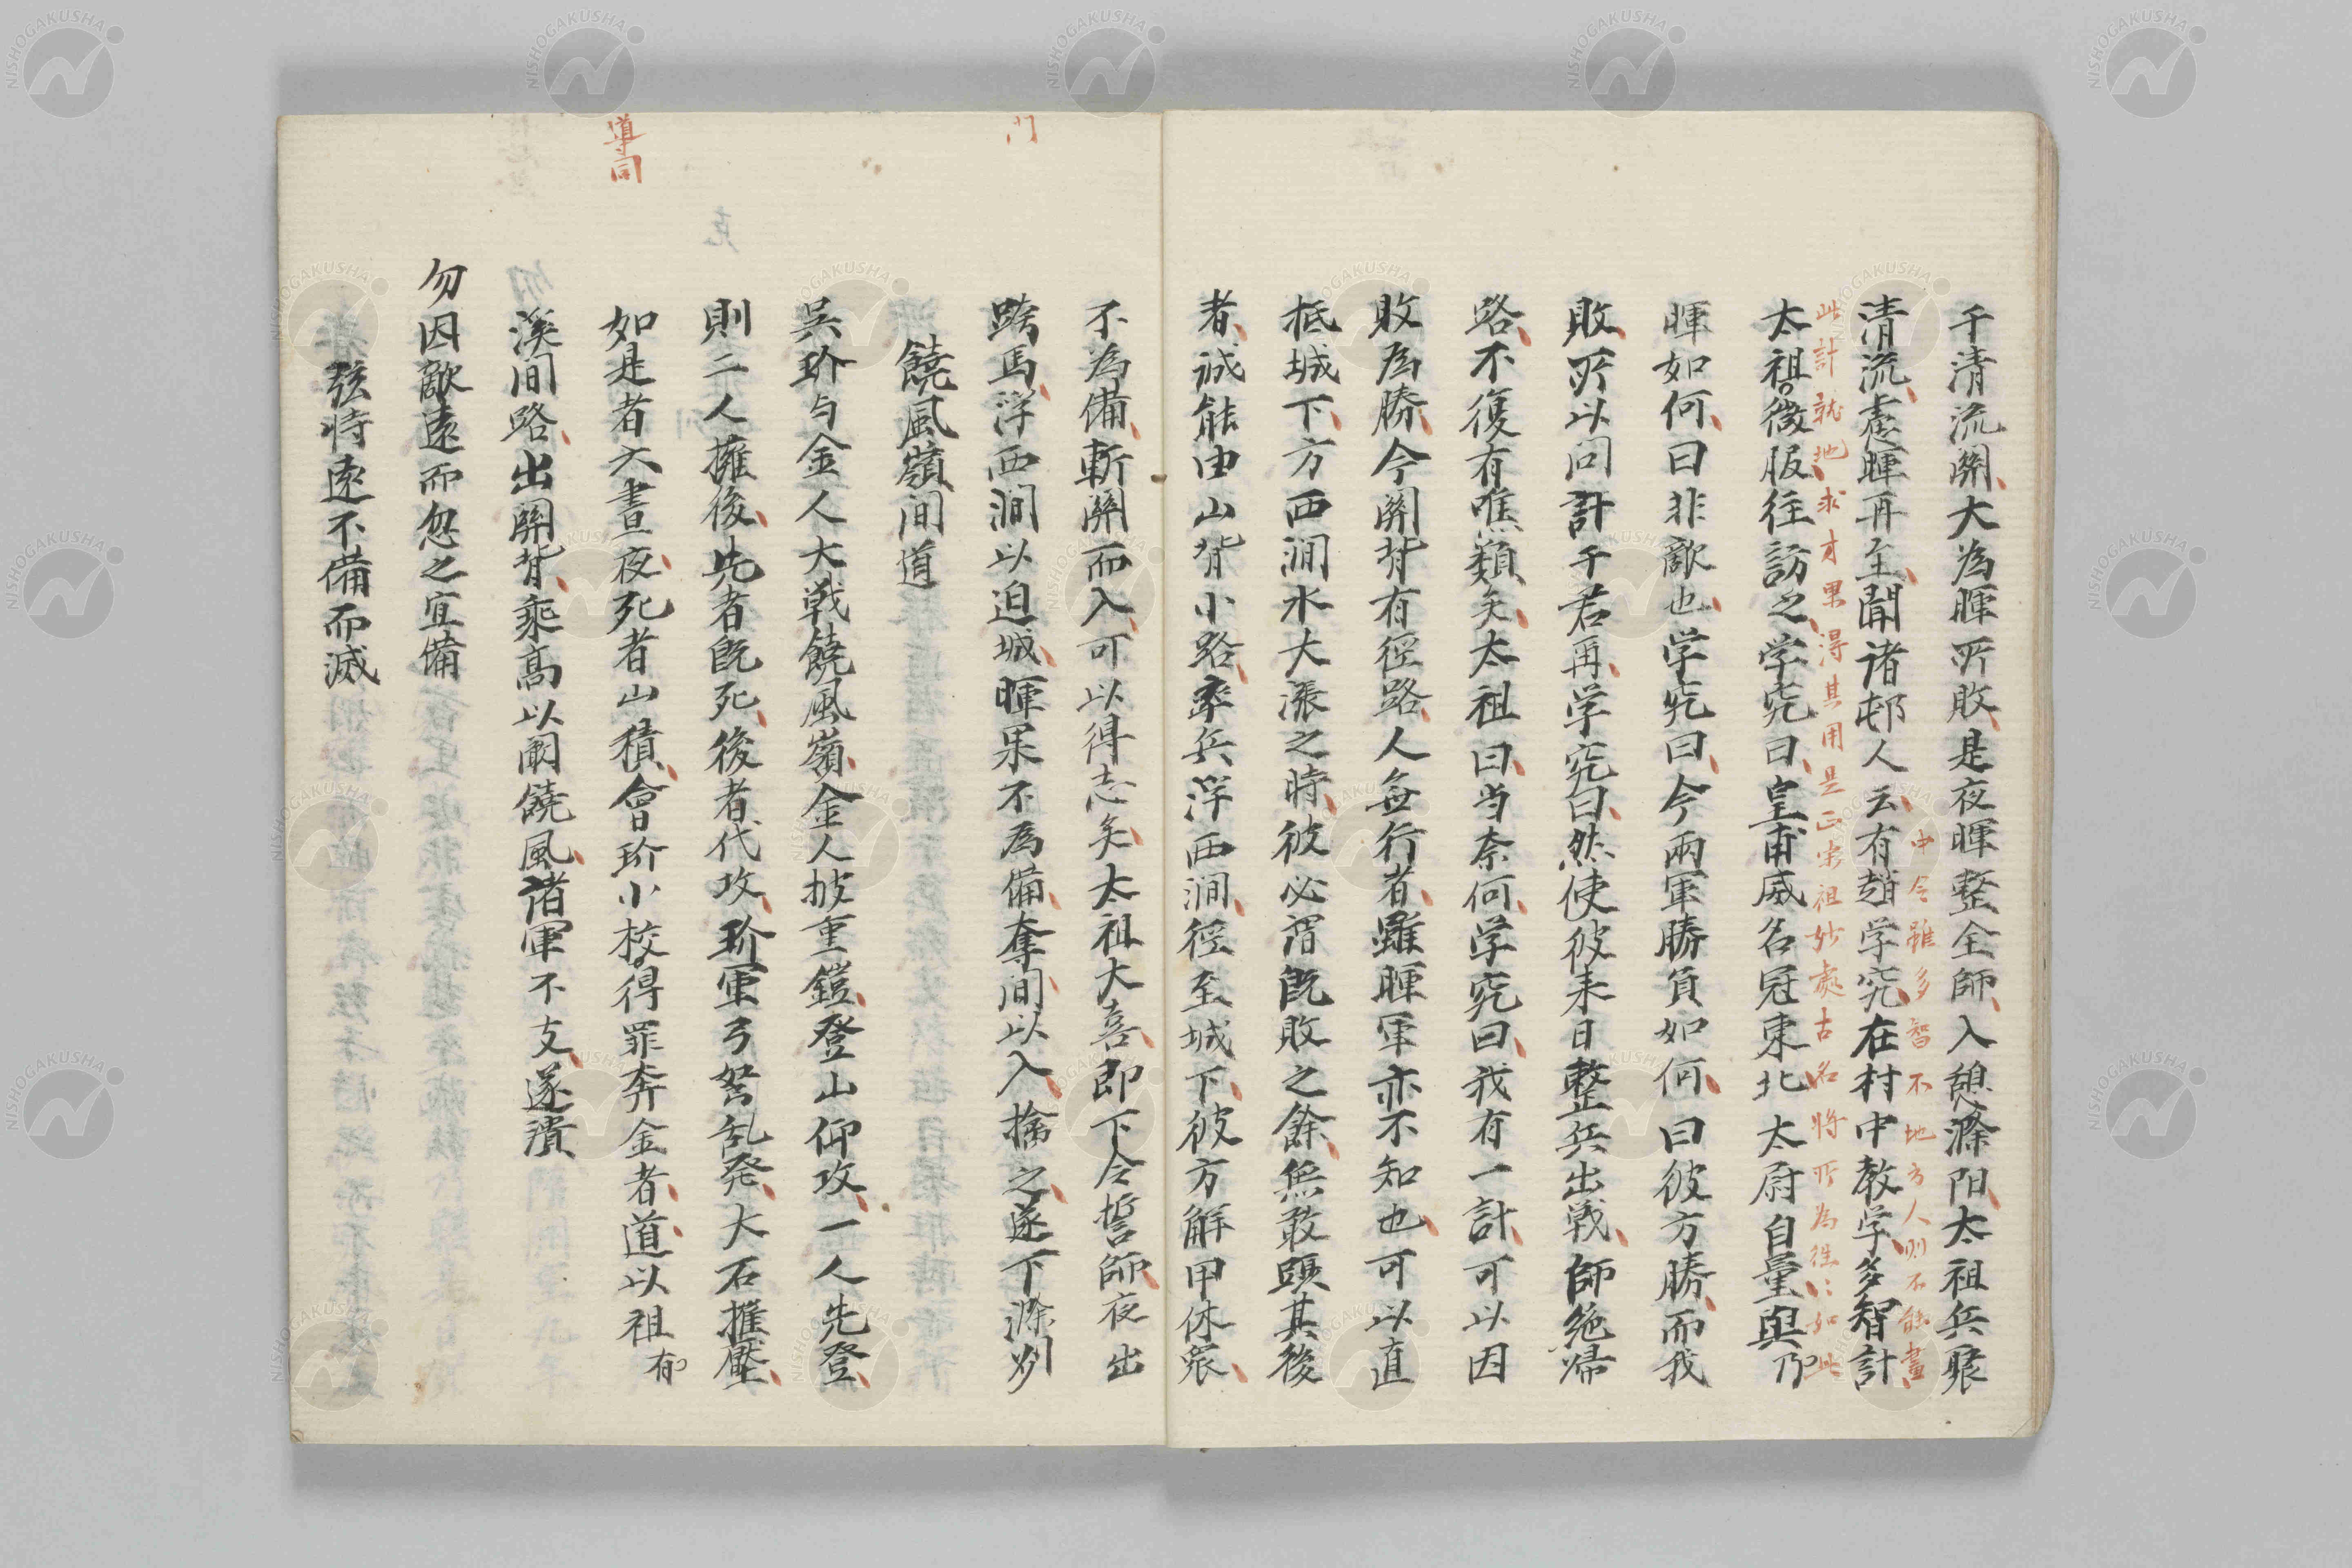 千清流關大為暉所敗是夜暉整全師入憩滁陽太祖兵聚
清流慮暉再至聞諸邨人云有趙学究在村中教学多智計
中令雖多智不地方人則不能畫
此計就地求才果得其用是正宋祖妙處古名将所為徃〻如此
太祖微服往訪之学究曰皇甫威名冠東北太尉自量與乃
暉如何曰非敵也学究曰今兩軍勝負如何曰彼方勝而我
敗所以问計千君再学究曰然使彼来日整兵出戦師絶帰
路不復有噍類矣太祖曰当奈何学究曰我有一計可以因
敗為勝今關背有徑路人無行者雖暉軍亦不知也可以直
抵城下方西澗水大漲之時彼必謂既敗之餘無敢躡其後
者誠能由山背小路率兵浮西澗徑至城下彼方解甲休衆
不為備斬關而入可以得志矣太祖大喜即下令誓師夜出
門
跨馬浮西澗以迫城暉果不為備奪间以入擒之遂下滁州
饒風嶺间道
吳玠与金人大戦饒風嶺金人披重鎧登山仰攻一人先登
則二人擁後先者既死後者代攻玠軍弓弩乱発大石摧壓
導同
如是者六晝夜死者山積會玠小校得罪奔金者道以祖有
溪间路出關背乘高以闞饒風諸軍不支遂潰
勿因敵遠而忽之宜備
弦恃遠不備而滅
NISHOGAKUSHA